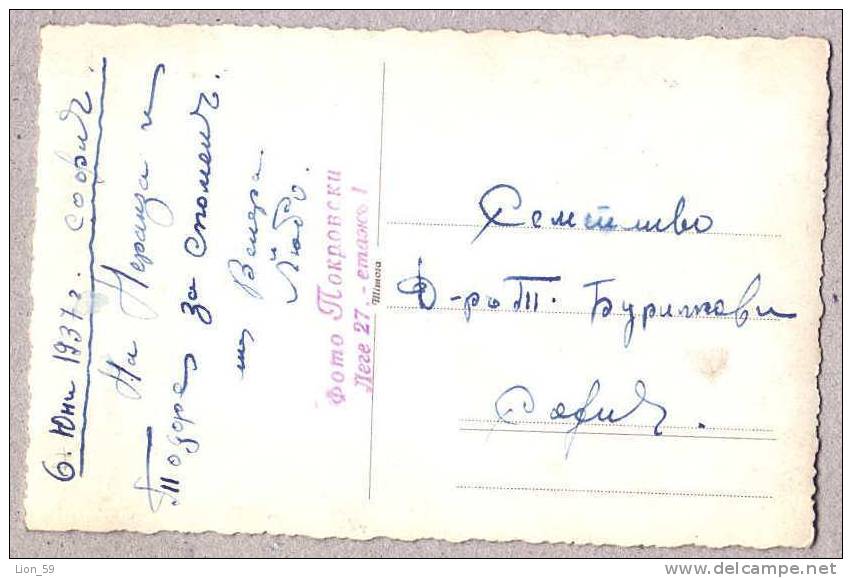 6. Юни 1937 г. София.
На Неранза и
Тодора за спомен
от Венера.
Любо.
Фото Покровски
Леге 27. - етажъ 1
Mimosa
Семейство
Д-ръ Т. Буримкови
София.
Lion_59
www.delcampe.net